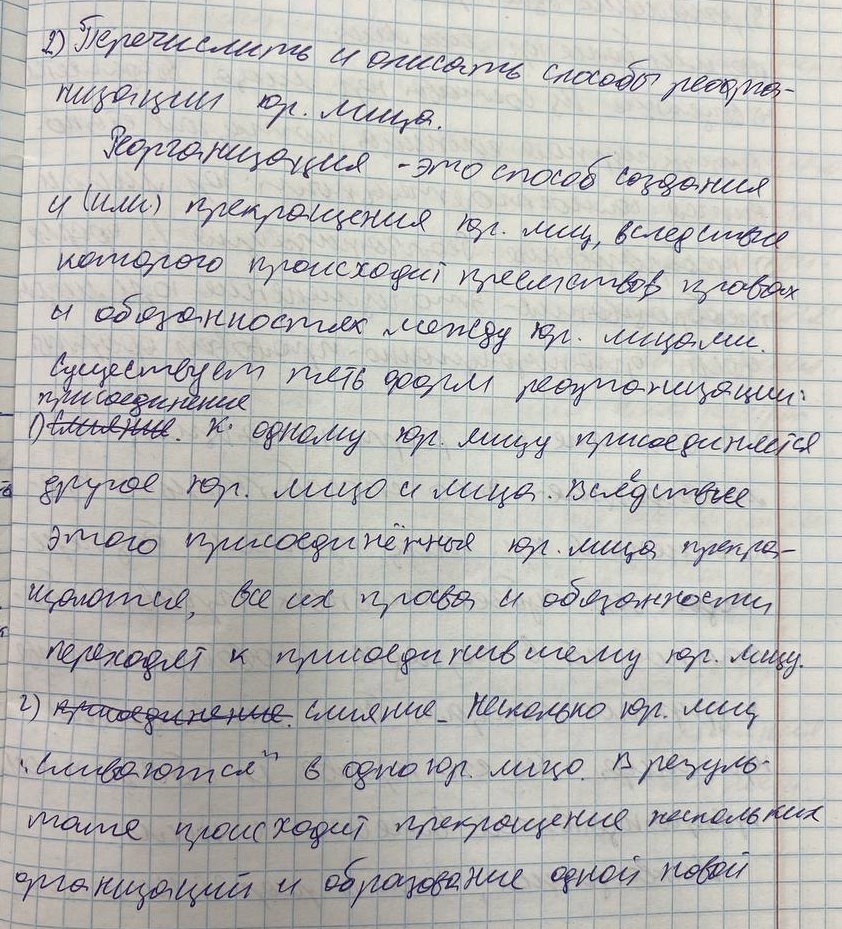 2) Перечислить и описать способы реорга-
низации юр. лица.
Реорганизация - это способ создания
и (или) прекращения юр. лиц, вследствие
которого происходит преемство в правах
и обязанностях между юр. лицами.
Существует пять форм реорганизации:
присоединение
1) ~~слияние~~. К одному юр. лицу присоединяется
другое юр. лицо и лица. Вследствие
этого присоединённые юр. лица прекра-
щаются, все их права и обязанности
переходят к присоединившему юр. лицу.
2) ~~присоединение~~. слияние - несколько юр. лиц
"сливаются" в одно юр. лицо. В резуль-
тате происходит прекращение нескольких
организаций и образование одной новой